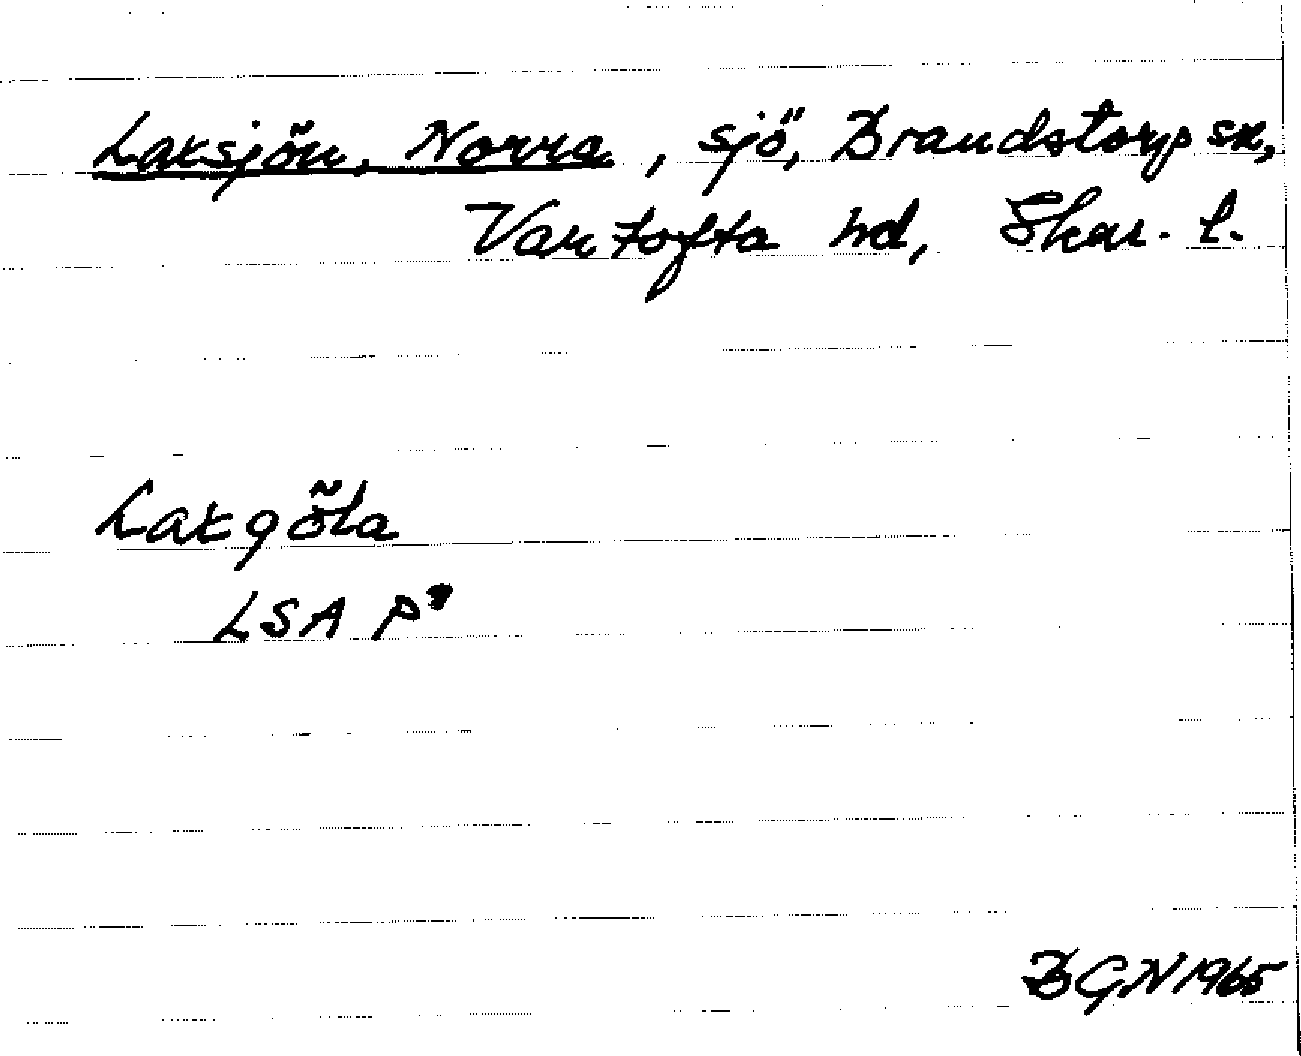 Laxsjön, Norra, sjö, Brandstorps sn,
Vartofta hd, Skar. l.
Laxgöla
LSA P
BGN 1965